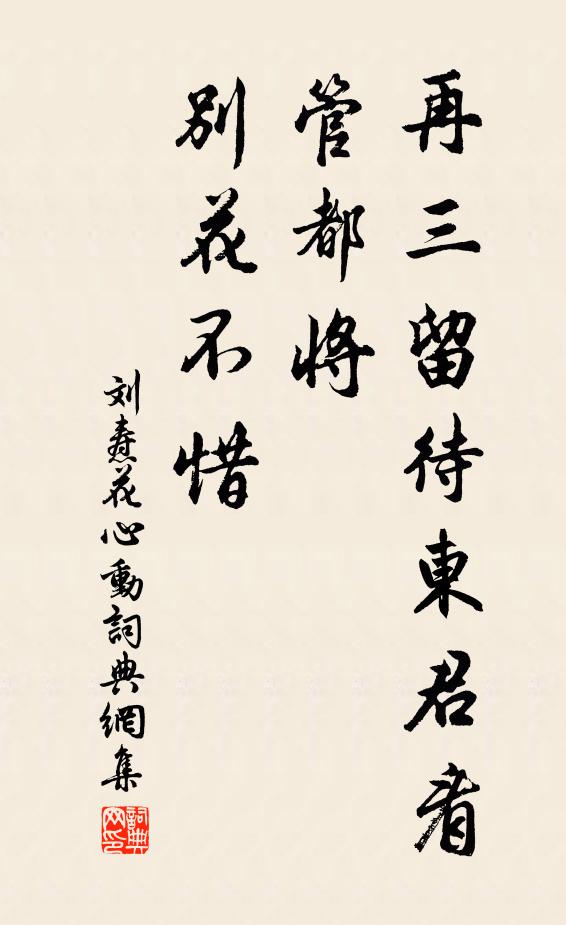 再三留待東君看
管都將
別花不惜
刘燾花心動詞典網集
詞典
网印